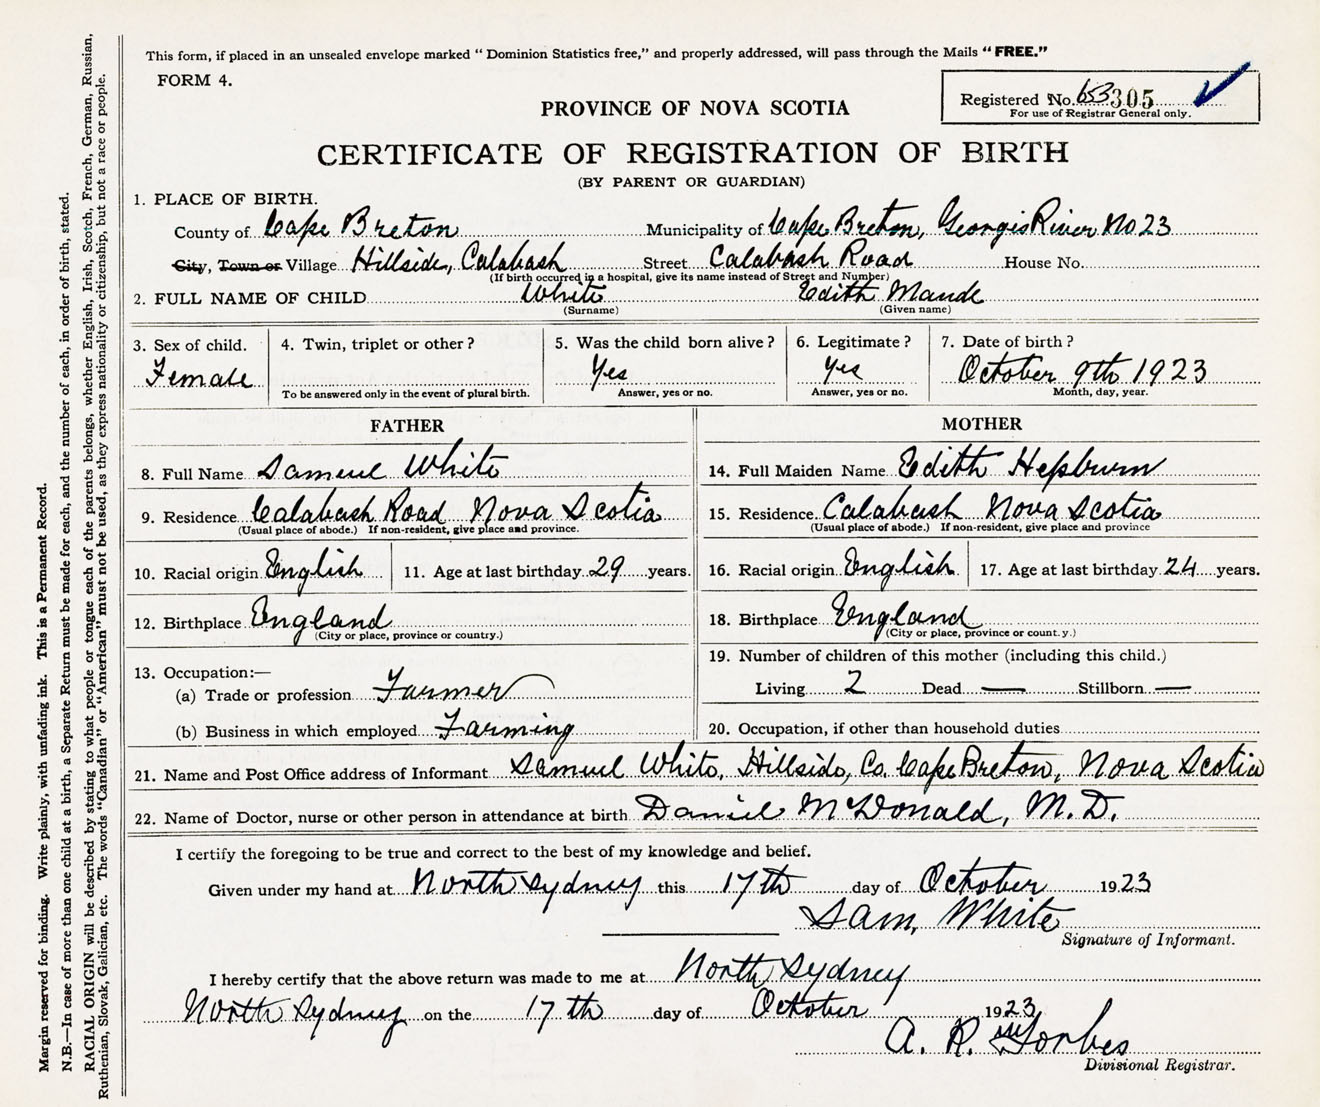 This form, if placed in an unsealed envelope marked "Dominion Statistics free," and properly addressed, will pass through the Mails "FREE."
FORM 4.
Registered No. 653 305
For use of Registrar General only.
PROVINCE OF NOVA SCOTIA
CERTIFICATE OF REGISTRATION OF BIRTH
(BY PARENT OR GUARDIAN)
1. PLACE OF BIRTH.
County of Cape Breton Municipality of Cape Breton, Georgis River No 23
City, Town or Village Hillside, Calabash Street Calabash Road House No.
(If birth occurred in a hospital, give its name instead of Street and Number)
2. FULL NAME OF CHILD White Edith Maude
(Surname) (Given name)
3. Sex of child. 4. Twin, triplet or other? 5. Was the child born alive? 6. Legitimate? 7. Date of birth?
Female Yes Yes October 9th 1923
To be answered only in the event of plural birth. Answer, yes or no. Answer, yes or no. Month, day, year.
FATHER MOTHER
8. Full Name Samuel White 14. Full Maiden Name Edith Hepburn
9. Residence Calabash Road Nova Scotia 15. Residence Calabash Nova Scotia
(Usual place of abode.) If non-resident, give place and province. (Usual place of abode.) If non-resident, give place and province
10. Racial origin English 11. Age at last birthday 29 years. 16. Racial origin English 17. Age at last birthday 24 years.
12. Birthplace England 18. Birthplace England
(City or place, province or country.) (City or place, province or country.)
13. Occupation:— 19. Number of children of this mother (including this child.)
(a) Trade or profession Farmer Living 2 Dead — Stillborn —
(b) Business in which employed Farming 20. Occupation, if other than household duties
21. Name and Post Office address of Informant Samuel White, Hillside, Co. Cape Breton, Nova Scotia
22. Name of Doctor, nurse or other person in attendance at birth Daniel McDonald, M.D.
I certify the foregoing to be true and correct to the best of my knowledge and belief.
Given under my hand at North Sydney this 17th day of October 1923
Sam, White
Signature of Informant.
I hereby certify that the above return was made to me at North Sydney
North Sydney on the 17th day of October 1923
A. R. Forbes
Divisional Registrar.
Margin reserved for binding. Write plainly, with unfading ink. This is a Permanent Record.
N.B.—In case of more than one child at a birth, a Separate Return must be made for each, and the number of each, in order of birth, stated.
RACIAL ORIGIN will be described by stating to what people or tongue each of the parents belongs, whether English, Irish, Scotch, French, German, Russian,
Ruthenian, Slovak, Galician, etc. The words "Canadian" or "American" must not be used, as they express nationality or citizenship, but not a race or people.